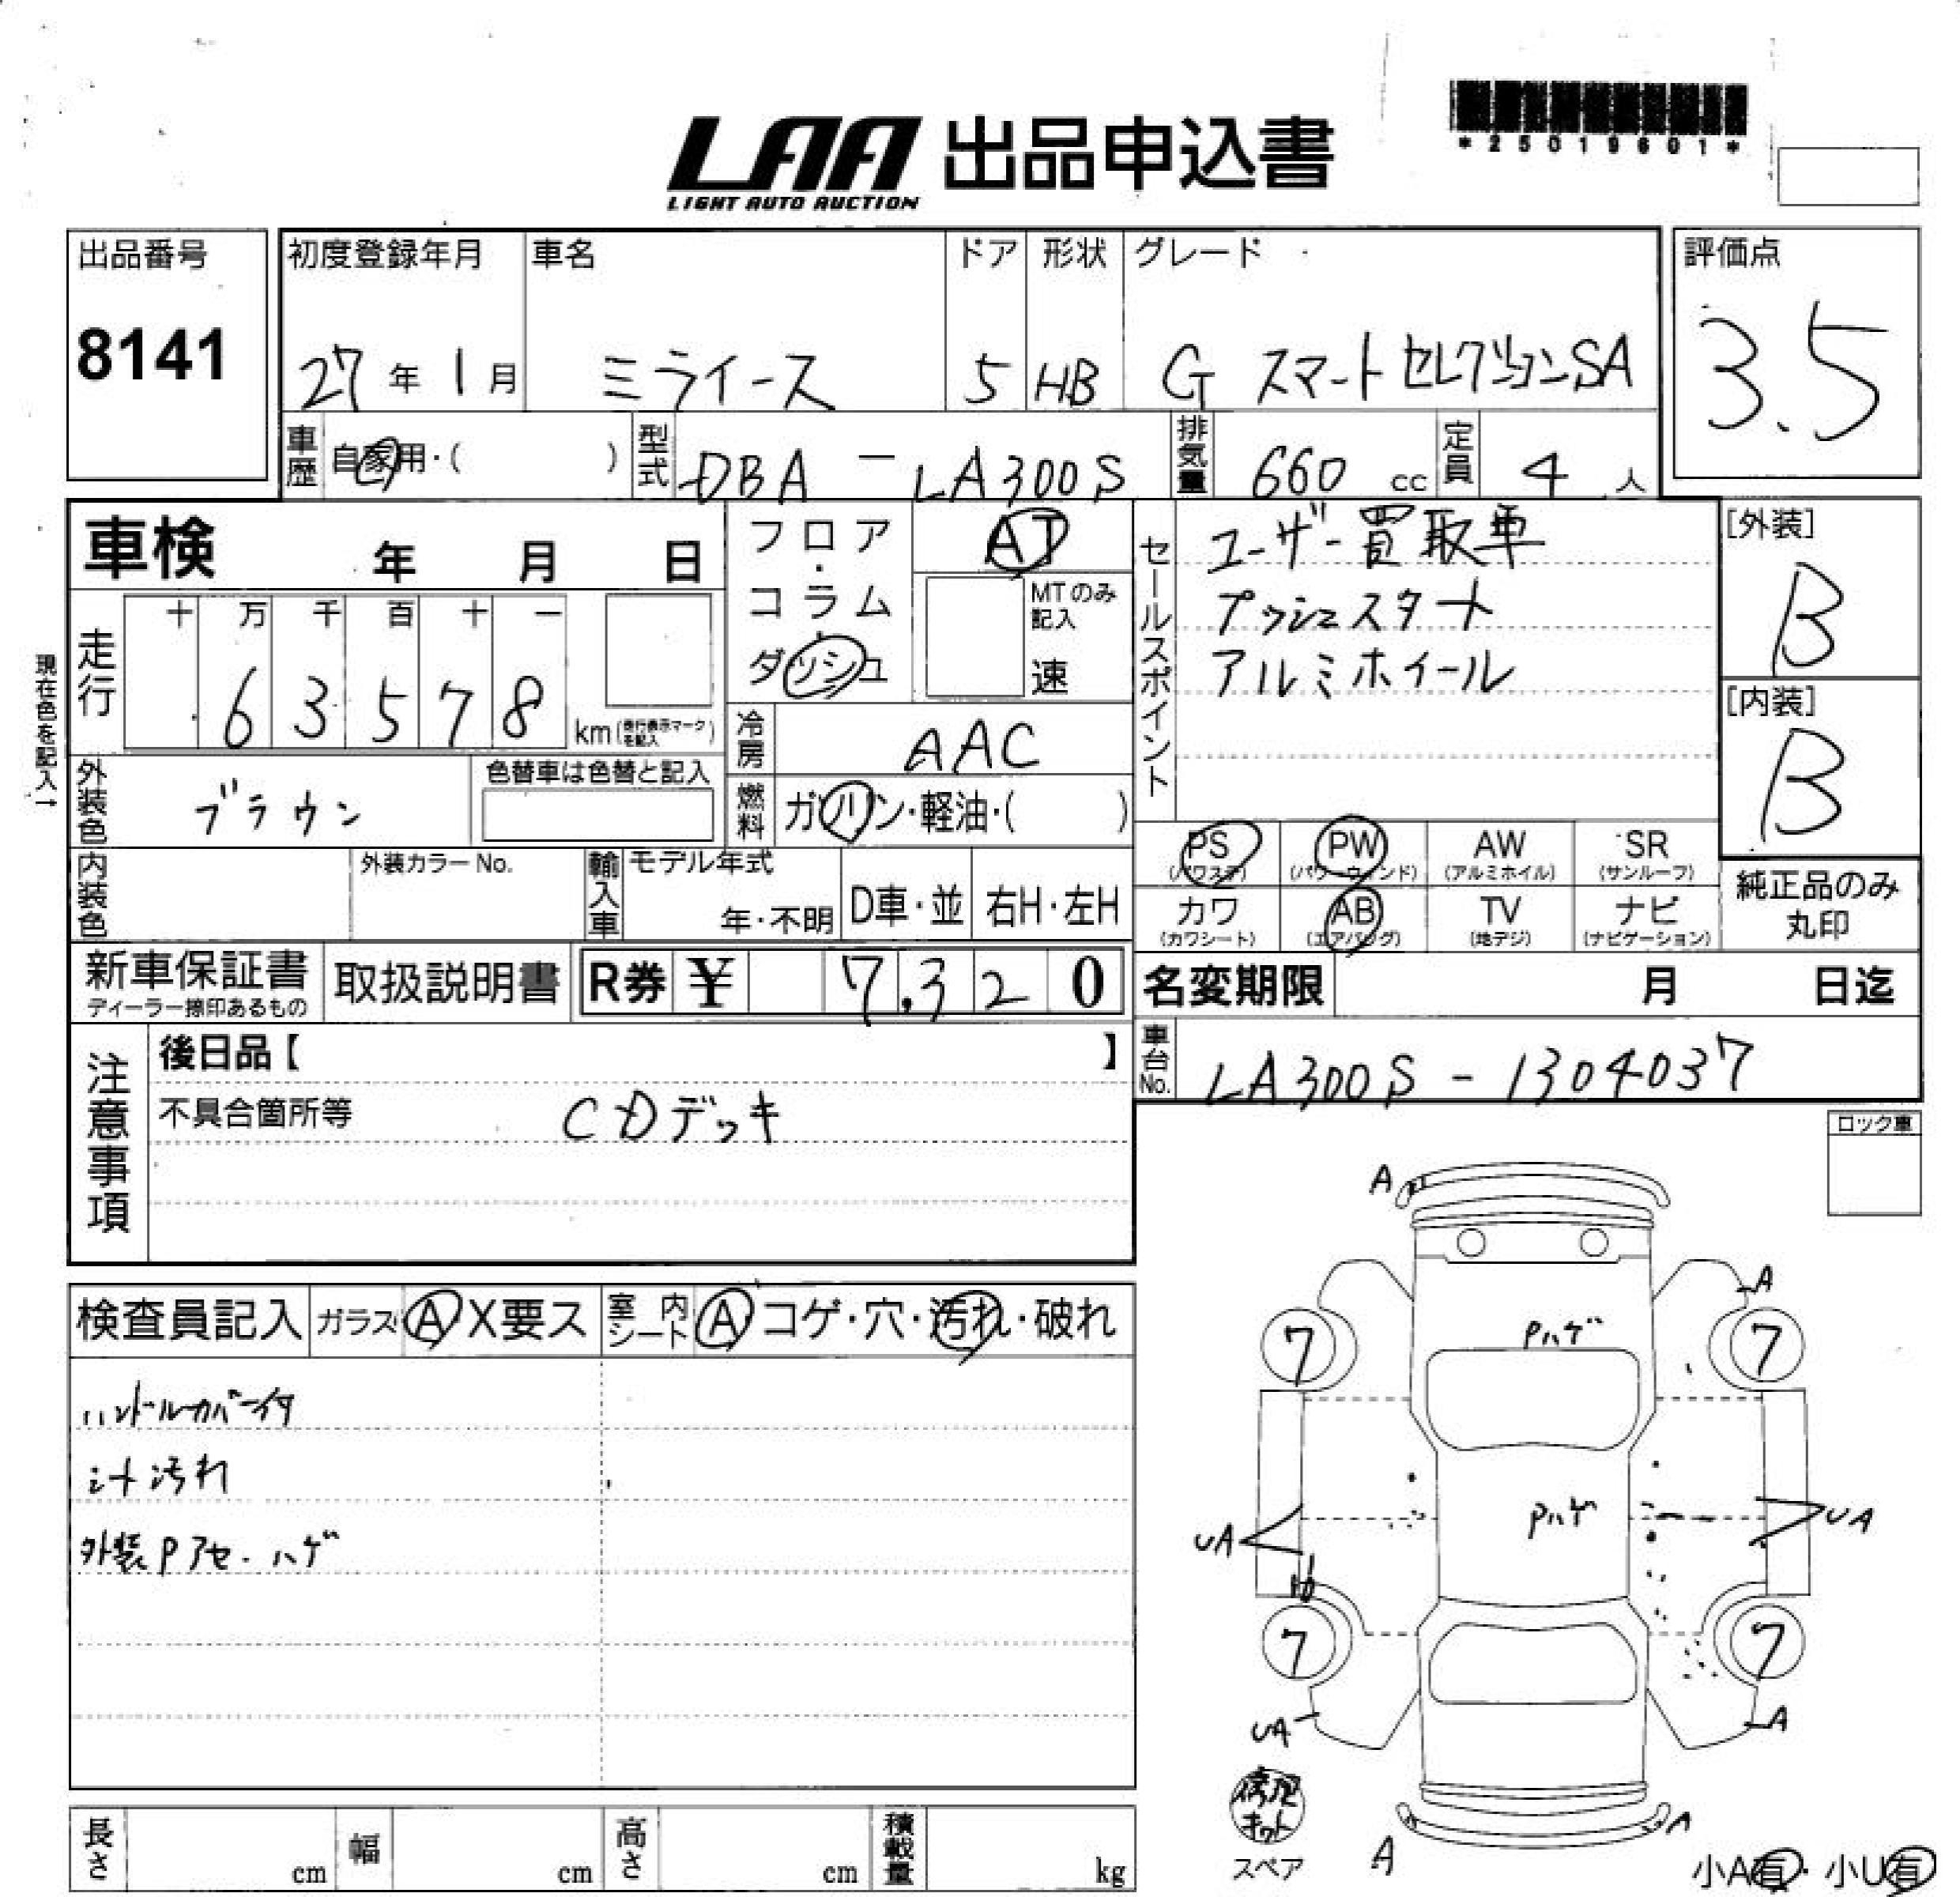 LAA 出品申込書
LIGHT AUTO AUCTION
*25019601*
出品番号
8141
初度登録年月
27年1月
車名
ミライース
ドア
5
形状
HB
グレード
G スマートセレクションSA
評価点
3.5
車歴
自家用・( )
型式
DBA - LA300S
排気量
660 cc
定員
4 人
車検 年 月 日
フロア・コラム・ダッシュ
AT
MTのみ記入
速
セールスポイント
ユーザー買取車
プッシュスタート
アルミホイール
[外装]
B
[内装]
B
現在色を記入→
走行
十 万 千 百 十 一
6 3 5 7 8
km(走行表示マークを記入)
冷房
AAC
外装色
ブラウン
色替車は色替と記入
燃料
ガソリン・軽油・( )
PS (パワステ)
PW (パワーウィンド)
AW (アルミホイル)
SR (サンルーフ)
カワ (カワシート)
AB (エアバッグ)
TV (地デジ)
ナビ (ナビゲーション)
純正品のみ
丸印
内装色
外装カラーNo.
輸入車
モデル年式
年・不明
D車・並
右H・左H
新車保証書
ディーラー捺印あるもの
取扱説明書
R券 ¥ 7,320
名変期限 月 日迄
注意事項
後日品【 】
不具合箇所等
CDデッキ
車台No.
LA300S - 1304037
ロック車
検査員記入
ガラス A X要ス
室内シート A コゲ・穴・汚れ・破れ
ハンドルカバー付
シート汚れ
外装Pアセ・ハゲ
A
A
Pハゲ
7
7
Pハゲ
UA
UA
7
7
UA
A
修理キット
スペア
A
A
小A有・小U有
長さ cm
幅 cm
高さ cm
積載量 kg